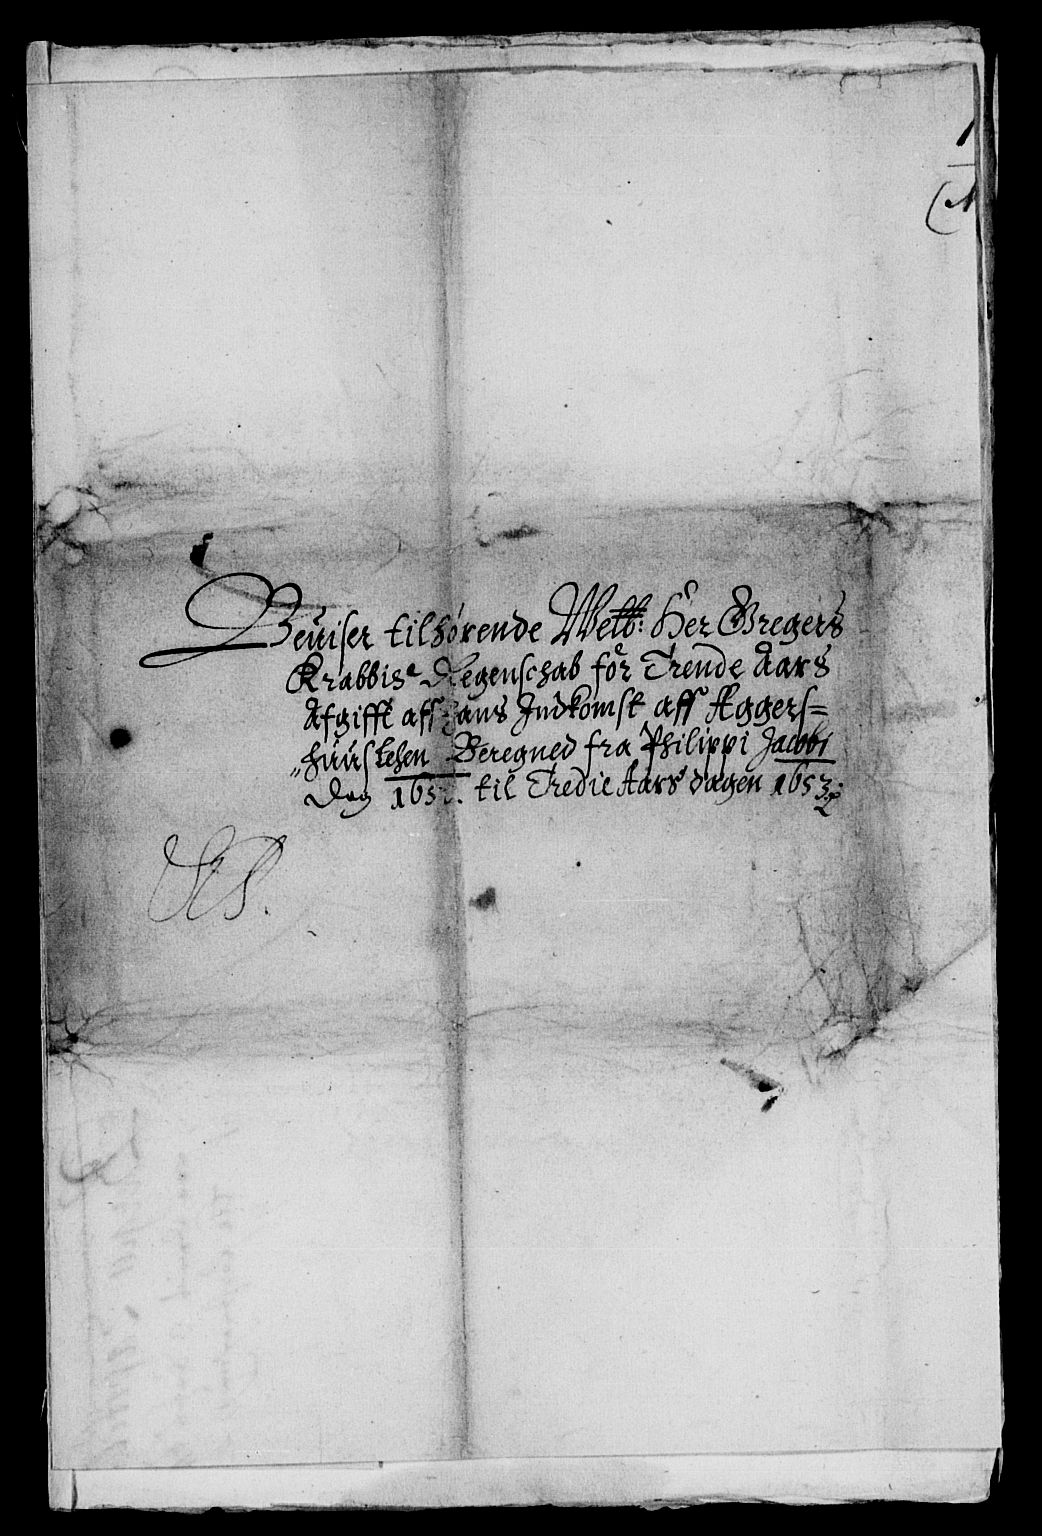 Beuiser tilhørende Welb: Her Gregers
Krabbis Regenschab för Trende Aars
Afgifft aff hans Indkomst aff Aggers=
„huus Lehen Beregned fra Philippi Jacobi
Dag 165 . til Tredie Aars dagen 1653.